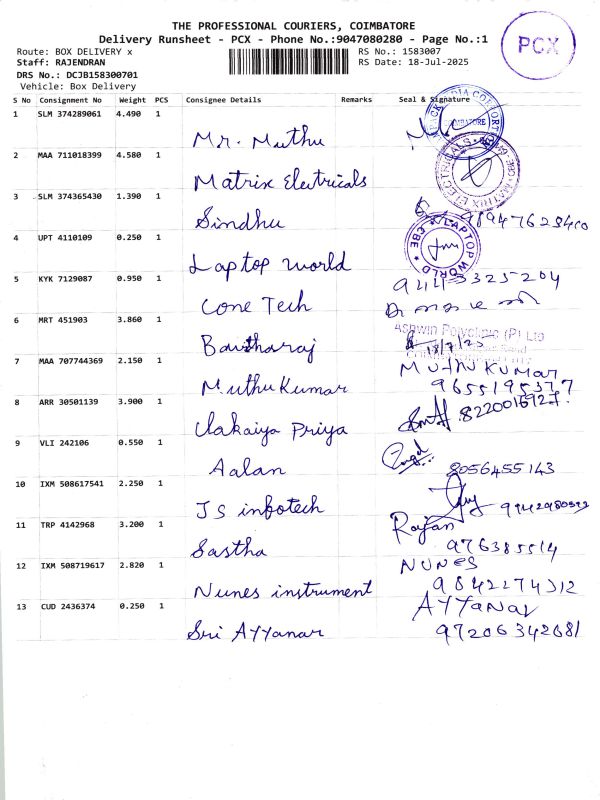 THE PROFESSIONAL COURIERS, COIMBATORE
Delivery Runsheet - PCX - Phone No.:9047080280 - Page No.:1
PCX
Route: BOX DELIVERY x
RS No.: 1583007
Staff: RAJENDRAN
RS Date: 18-Jul-2025
DRS No.: DCJB158300701
Vehicle: Box Delivery
S No Consignment No Weight PCS Consignee Details Remarks Seal & Signature
1 SLM 374289061 4.490 1
Mr. Muthu
2 MAA 711018399 4.580 1
Matrix Electricals
3 SLM 374365430 1.390 1
Sindhu
4 UPT 4110109 0.250 1
Laptop world
LAPTOP WORLD
CBE
5 KYK 7129087 0.950 1
Cone Tech
6 MRT 451903 3.860 1
Ashwin Polyclinic (P) Ltd
7 MAA 707744369 2.150 1
MUTHU KUMAR
MuthuKumar
8 ARR 30501139 3.900 1
Priya
9 VLI 242106 0.550 1
Aalan
8056455143
10 IXM 508617541 2.250 1
JS infotech
11 TRP 4142968 3.200 1
Rajan
Sastha
976385514
12 IXM 508719617 2.820 1
NUNES
Nunes instrument
9842274312
13 CUD 2436374 0.250 1
AYYANAR
Sri Ayyanar
97206342681